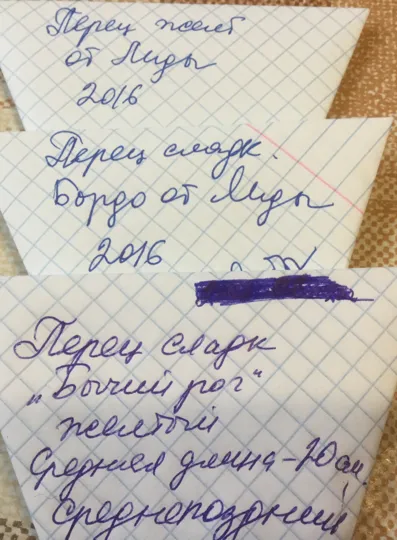 Перец желт
от Лиды
2016
Перец сладк.
Бордо от Лиды
2016
Перец сладк
„Бычий рог"
желтый
Средняя длина – 20 см,
Среднепоздний